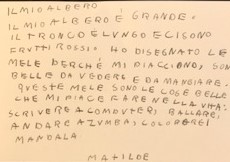 IL MIO ALBERO
IL MIO ALBERO É GRANDE.
IL TRONCO E LUNGO E CI SONO
FRUTTI ROSSI. HO DISEGNATO LE
MELE PERCHÉ MI PIACCIONO, SONO
BELLE DA VEDERE E DA MANGIARE.
QUESTE MELE SONO LE COSE BELLE
CHE MI PIACE FARE NELLA VITA:
SCRIVERE A COMPUTER, BALLARE,
ANDARE A ZUMBA, COLORARE I
MANDALA.
MATILDE